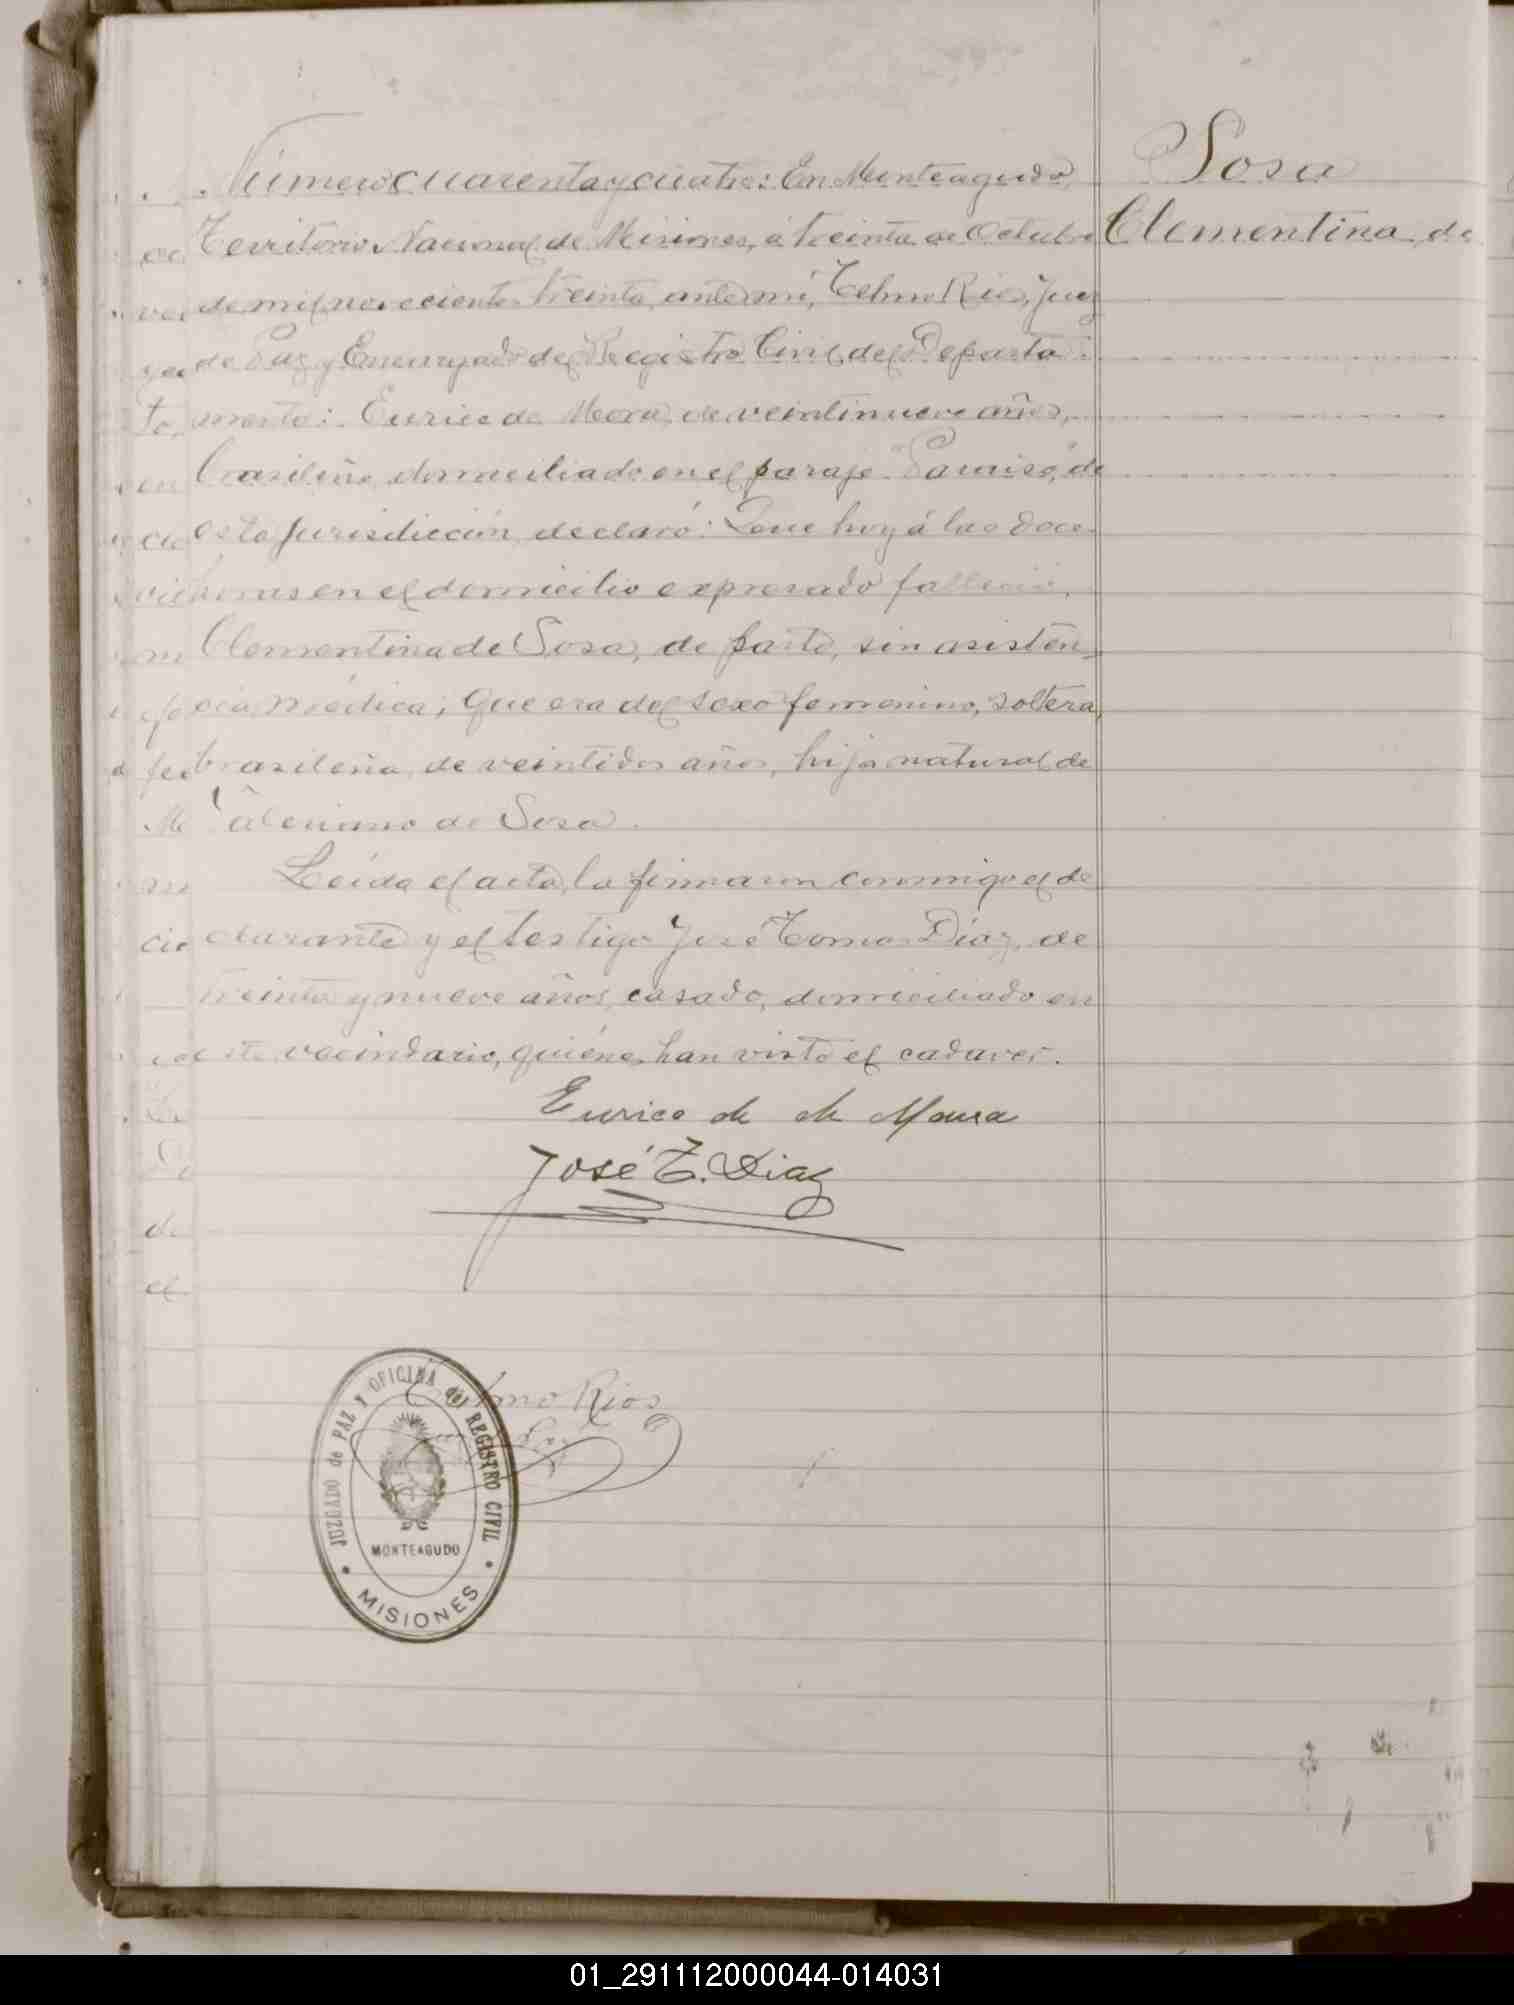 Sosa
Clementina de
Número cuarenta y cuatro: En Monteagudo,
Territorio Nacional de Misiones, á treinta de Octubre
de mil novecientos treinta, ante mí, Telmo Rios, Juez
de Paz y Encargado del Registro Civil del Departa
mento: Eurico de Mora, de veintinueve años,
brasileño, domiciliado en el paraje "Paraiso", de
esta jurisdicción, declaró: Que hoy á las doce
horas en el domicilio expresado falleció,
Clementina de Sosa, de parto, sin asisten-
cia médica; que era del sexo femenino, soltera,
brasileña, de veintidos años, hija natural de
Valeriano de Sosa.
Leída el acta, la firmaron conmigo el de
clarante y el testigo José Tomas Díaz, de
treinta y nueve años, casado, domiciliado en
este vecindario, quiénes han visto el cadaver.
Eurico de Moura
José T. Diaz
Telmo Rios
JUZGADO de PAZ Y OFICINA del REGISTRO CIVIL
MONTEAGUDO
MISIONES
01_291112000044-014031